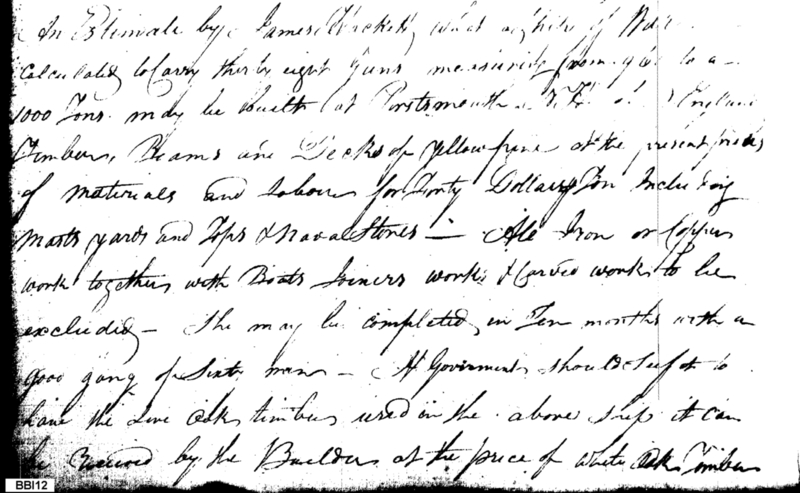 An Estimate by James Hackett, what a ship of War
calculated to Carry thirty eight Guns measuring from 900 to a
1000 Tons may be built at Portsmouth N. England
Timber, Beams and Decks of yellow pine at the present prices
of materials and Labour for Forty Dollars Ton Including
Masts yards and Tops & Naval Stores — All Iron or Copper
work together with Boats Joiners work & Carved works to be
excluded — She may be completed in Ten months with a
good gang of Sixty men — If Goverment should see fit to
have the Live Oak timber used in the above ship it can
be Received by the Builder at the price of white Oak Timber
BBI12